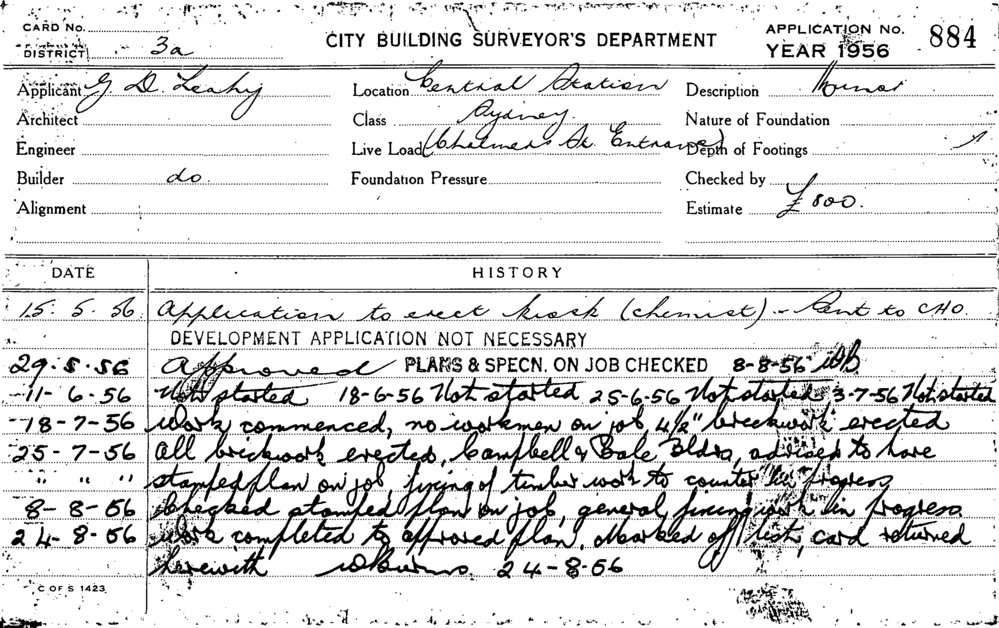 CARD No.
CITY BUILDING SURVEYOR'S DEPARTMENT
APPLICATION No. 884
DISTRICT 3a
YEAR 1956
Applicant G. D. Leahy Location Central Station Description Minor
Architect Class Sydney Nature of Foundation
Engineer Live Load (Chalmers St. Entrance) Depth of Footings
Builder do. Foundation Pressure Checked by
Alignment Estimate £800.
DATE HISTORY
15. 5. 56 Application to erect kiosk (chemist) - Sent to CHO.
DEVELOPMENT APPLICATION NOT NECESSARY
29.5.56 Approved PLANS & SPECN. ON JOB CHECKED 8-8-56
11-6-56 Not started 18-6-56 Not started 25-6-56 Not started 3-7-56 Not started
18-7-56 Work commenced, no workmen on job, 4½" brickwork erected
25-7-56 All brickwork erected, Campbell & Bale Bldrs, advised to have
" " " stamped plan on job, fixing of timber work to counter in progress
8-8-56 Checked stamped plan on job, general fixing work in progress
24-8-56 Work completed to approved plan. Marked off list, card returned
herewith 24-8-56
C OF S 1423